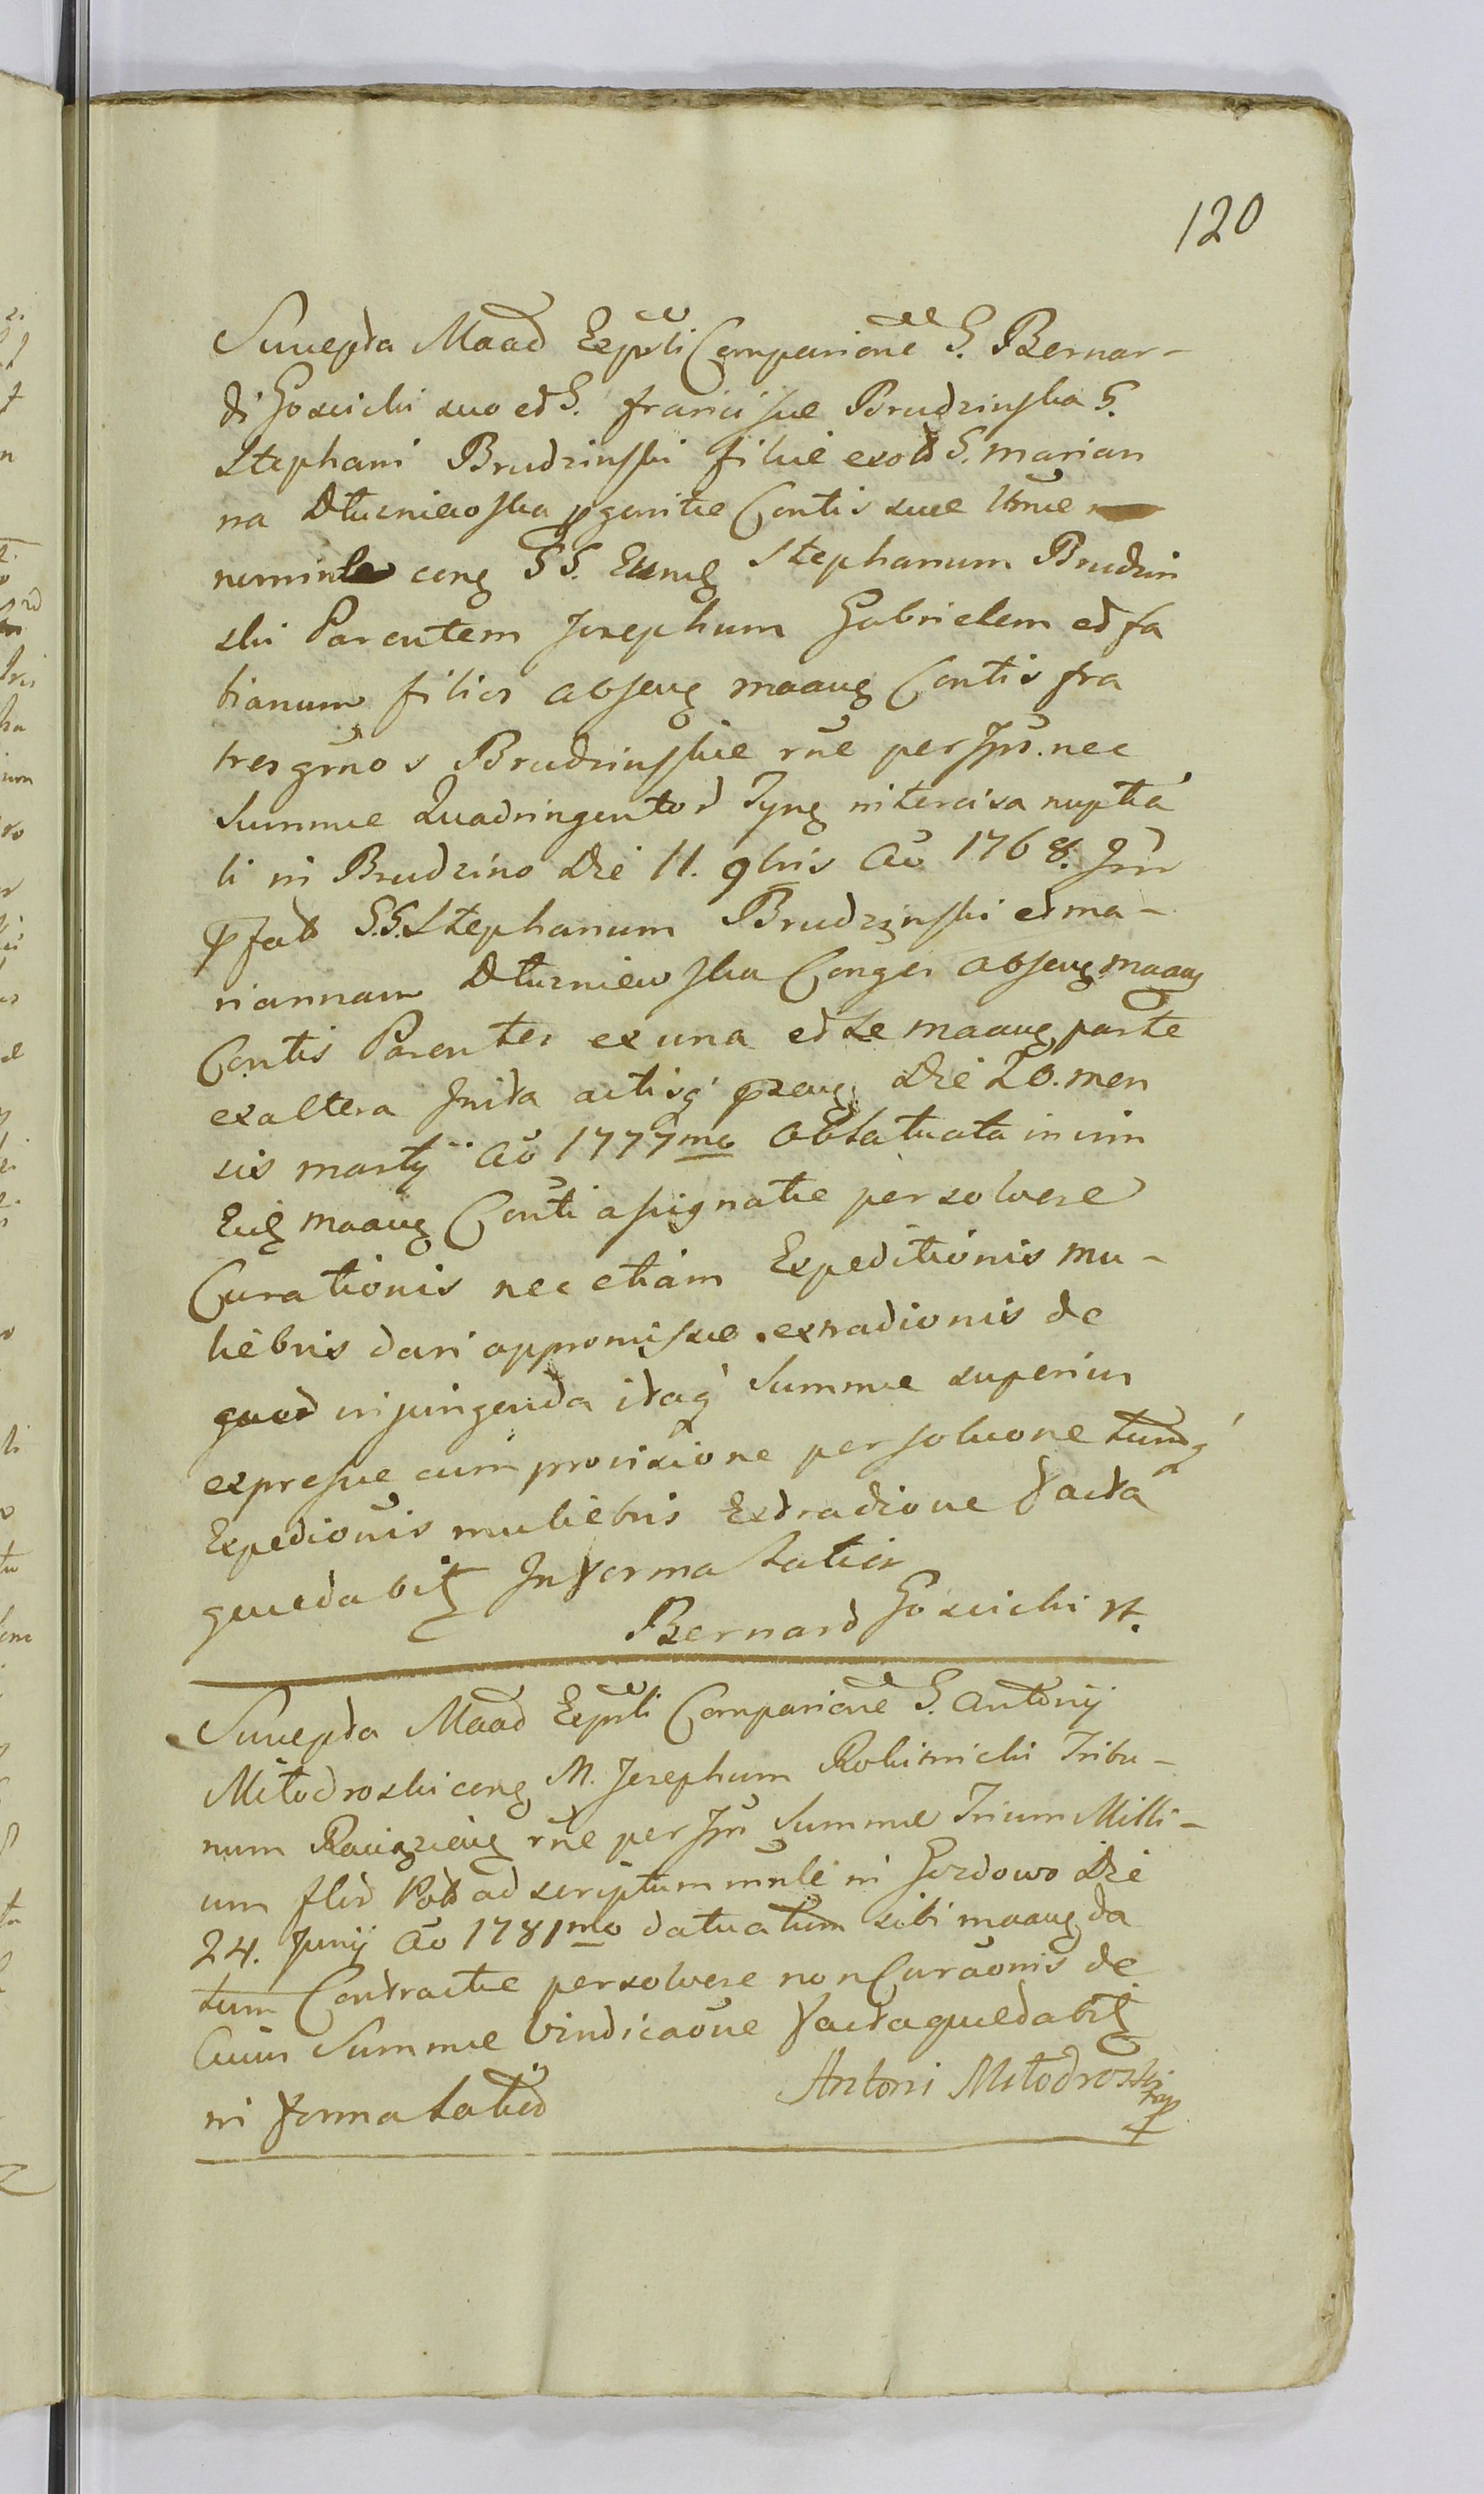 120
Suscepta Maad Exprli Comparione G. Bernar-
di Gościcki suo et G. Francisce Brudzinska G.
Stephani Brudzinski filie ex olt G. Marian
na Dłuzniewska pgenite Contis sue ltme
nomine cong GG. Stephanum Brudzin
ski Parentem Josephum Gabrielem et Fa
bianum filios Contis fra
tres grnos Brudzinskie rne per Jps. nec
Summe Quadringentor Tynf intercisa nuptia
li in Brudzino Die 11. 9bris Ao 1768. Jnr
pfat G.G. Stephanum Brudzynski et Ma-
riannam Dłuzniewska Conges
Contis Parentes ex una et se parte
ex altera Jnita actisq Die 20. men
sis Martij Ao 1777mo oblatuata in vim
Conti assignatie persolvere
Curationis nec etiam Expeditionis mu-
liebris dari appromissue extradionis de
quod injungenda itaq Summe superius
expresse cum provisione persoluone tumq
Expedionis muliebris Extradione Facta
quedabit In Forma Latior
Bernard Gościcki
Suscepta Maad Exprli Comparione G. Antonij
Miłodroski cong M. Josephum Rokitnicki Tribu-
num rne per Jpn Summe Trium Milli-
um flor Polt ad scriptum mnle in Gozdowo Die
24. Junij Ao 1781mo datuatum sibi da
tum Contractue persolvere non Curaonis de
Cuius Summe Vindicaone Facta quedabit
in Forma Latior
Antoni Miłodroski